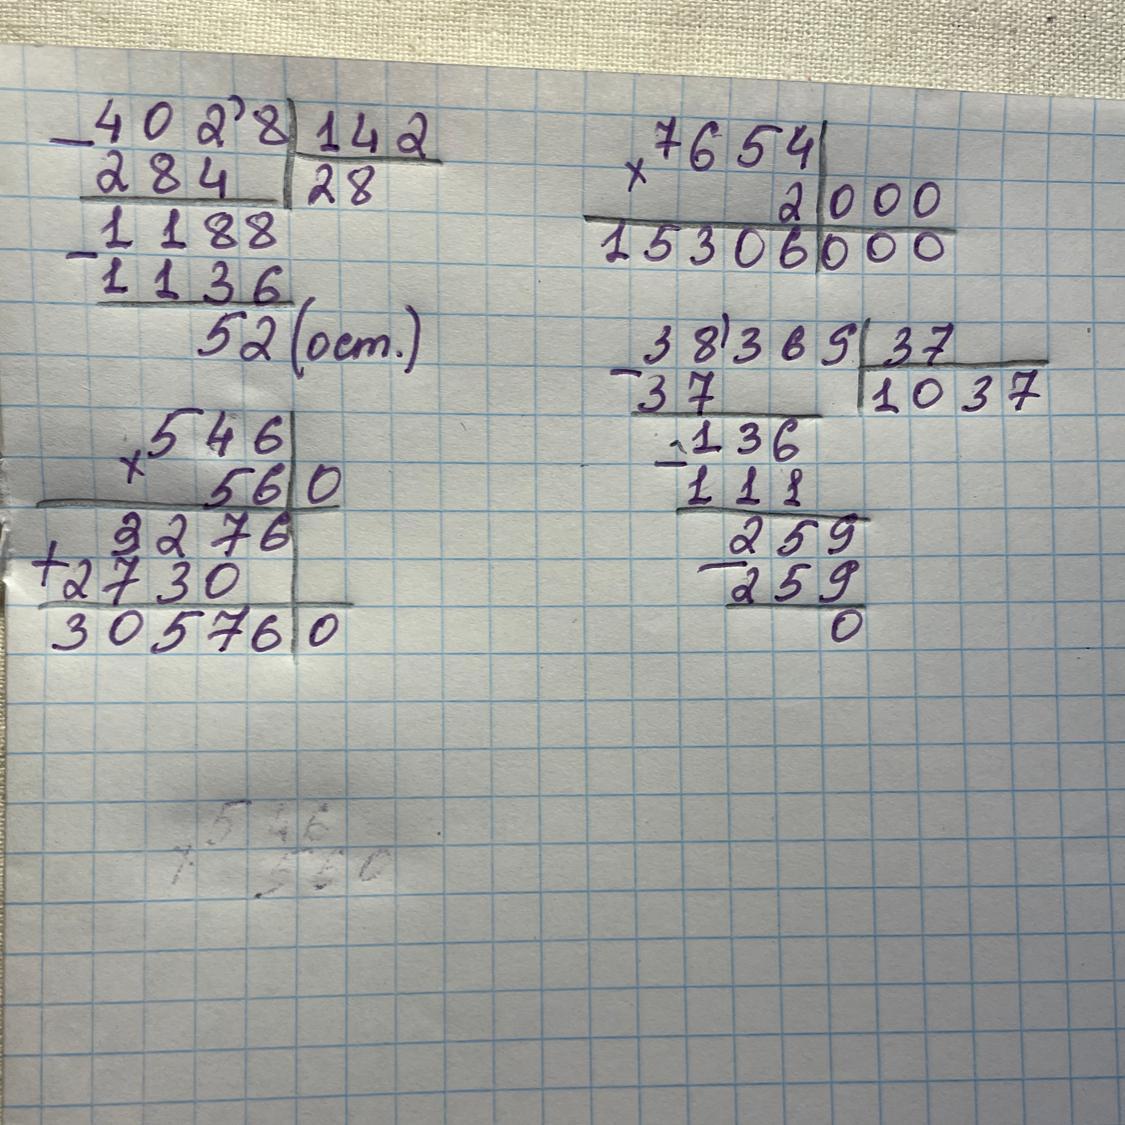 - 402'8 142
284 28
1188
- 1136
52 (ост.)
546
x 560
3276
+ 2730
305760
7654
x 2000
15306000
- 38'369 37
37 1037
- 136
111
259
- 259
0
546
x 560